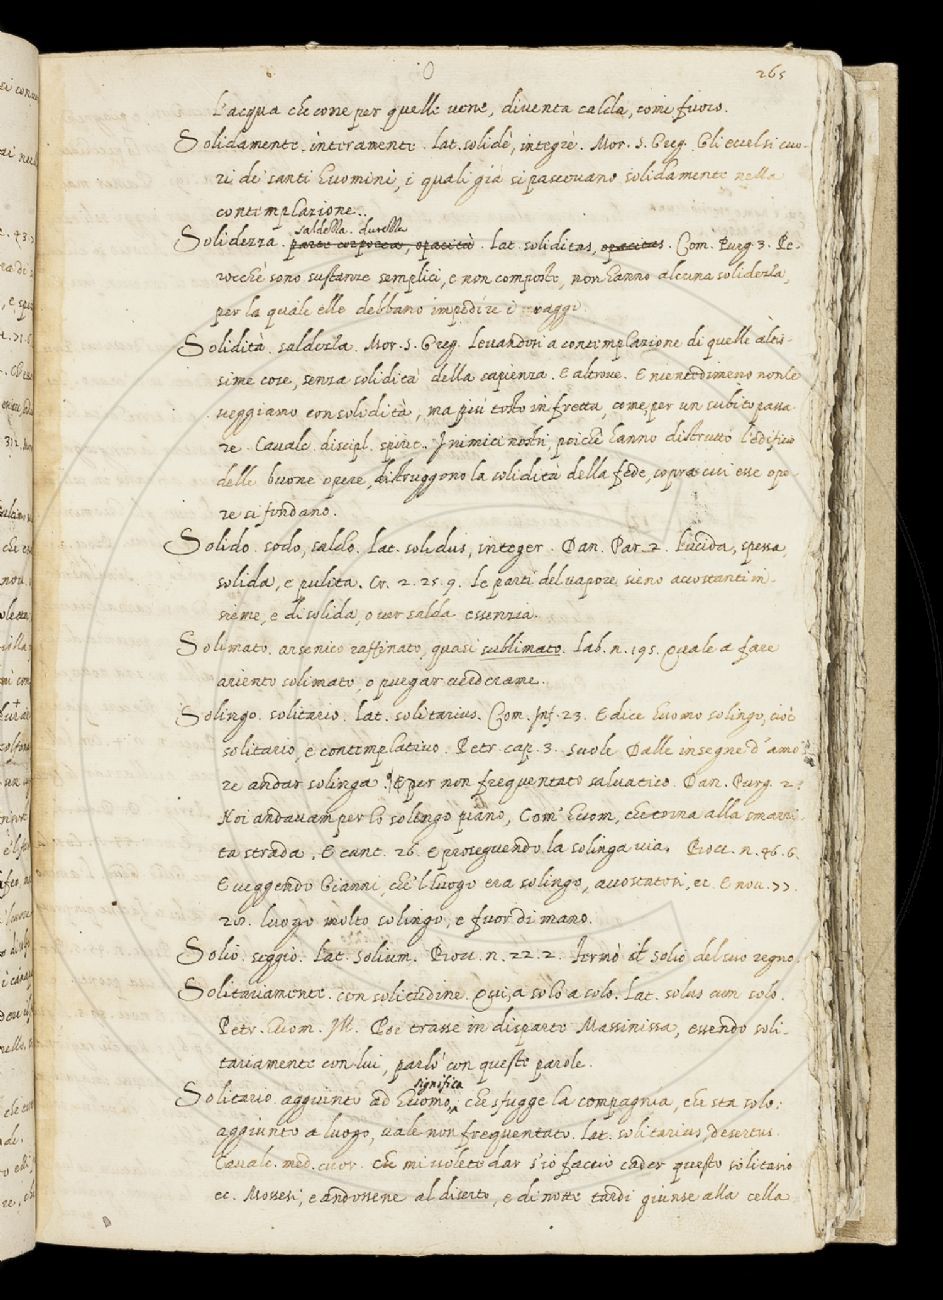 265
L'acqua che corre per quelle vene, diventa calda, come fuoco.
Solidamente. interamente. Lat. solidè, integrè. Mor. S. Greg. Gli eccelsi cuo-
ri de' santi huomini, i quali già si pascevano solidamente nella
contemplazione.
saldezza. durezza
Solidezza. parte corporea, opacità. Lat. soliditas, opacitas. Com. Purg. 3. Pe-
rocchè sono sustanze semplici, e non composte, non hanno alcuna solidezza,
per la quale elle debbano impedire i raggi.
Solidità. saldezza. Mor. S. Greg. Levandosi a contemplazione di quelle altis-
sime cose, senza solidità della sapienza. E altrove. E nientedimeno non le
veggiamo con solidità, ma più tosto in fretta, come, per un subito passa-
re. Cavalc. discipl. spirit. Inimici nostri poichè hanno distrutto l'edificio
delle buone opere, distruggono la solidità della fede, sopra cui esse ope-
re si fondano.
Solido. sodo, saldo. Lat. solidus, integer. Dan. Par. 2. Lucida, spessa,
solida, e pulita. Cr. 2. 25. 9. Le parti del vapore sieno accostanti in-
sieme, e di solida, o ver salda essenzia.
Solimato. arsenico raffinato, quasi sublimato. Lab. n. 195. Quale a fare
ariento solimato, o purgar verderame.
Solingo. solitario. Lat. solitarius. Com. Inf. 23. E dice huomo solingo, cioè
solitario, e contemplativo. Petr. cap. 3. Suole Dalle insegne d'amo-
re andar solinga. E per non frequentato salvatico. Dan. Purg. 2.
Noi andavam per lo solingo piano, Com' huom, che torna alla smarri-
ta strada. E cant. 26. E proseguendo la solinga via. Bocc. n. 46. 6.
E veggendo Gianni, che 'l luogo era solingo, accostatosi, ec. E nov. 77.
28. luogo molto solingo, e fuor di mano.
Solio. seggio. Lat. solium. Bocc. n. 22. 2. Fermò il solio del suo regno
Solitariamente. con solitudine. Qui, a solo a solo. Lat. solus cum solo.
Petr. huom. Ill. Poi trasse in disparte Massinissa, essendo soli-
tariamente con lui, parlò con queste parole.
significa
Solitario. aggiunto ad huomo, che sfugge la compagnia, che sta solo:
aggiunto a luogo, vale non frequentato. Lat. solitarius, desertus.
Cavalc. med. cuor. Che mi volete dar s'io faccio cader questo solitario
ec. Mossesi, e andossene al diserto, e di notte tardi giunse alla cella